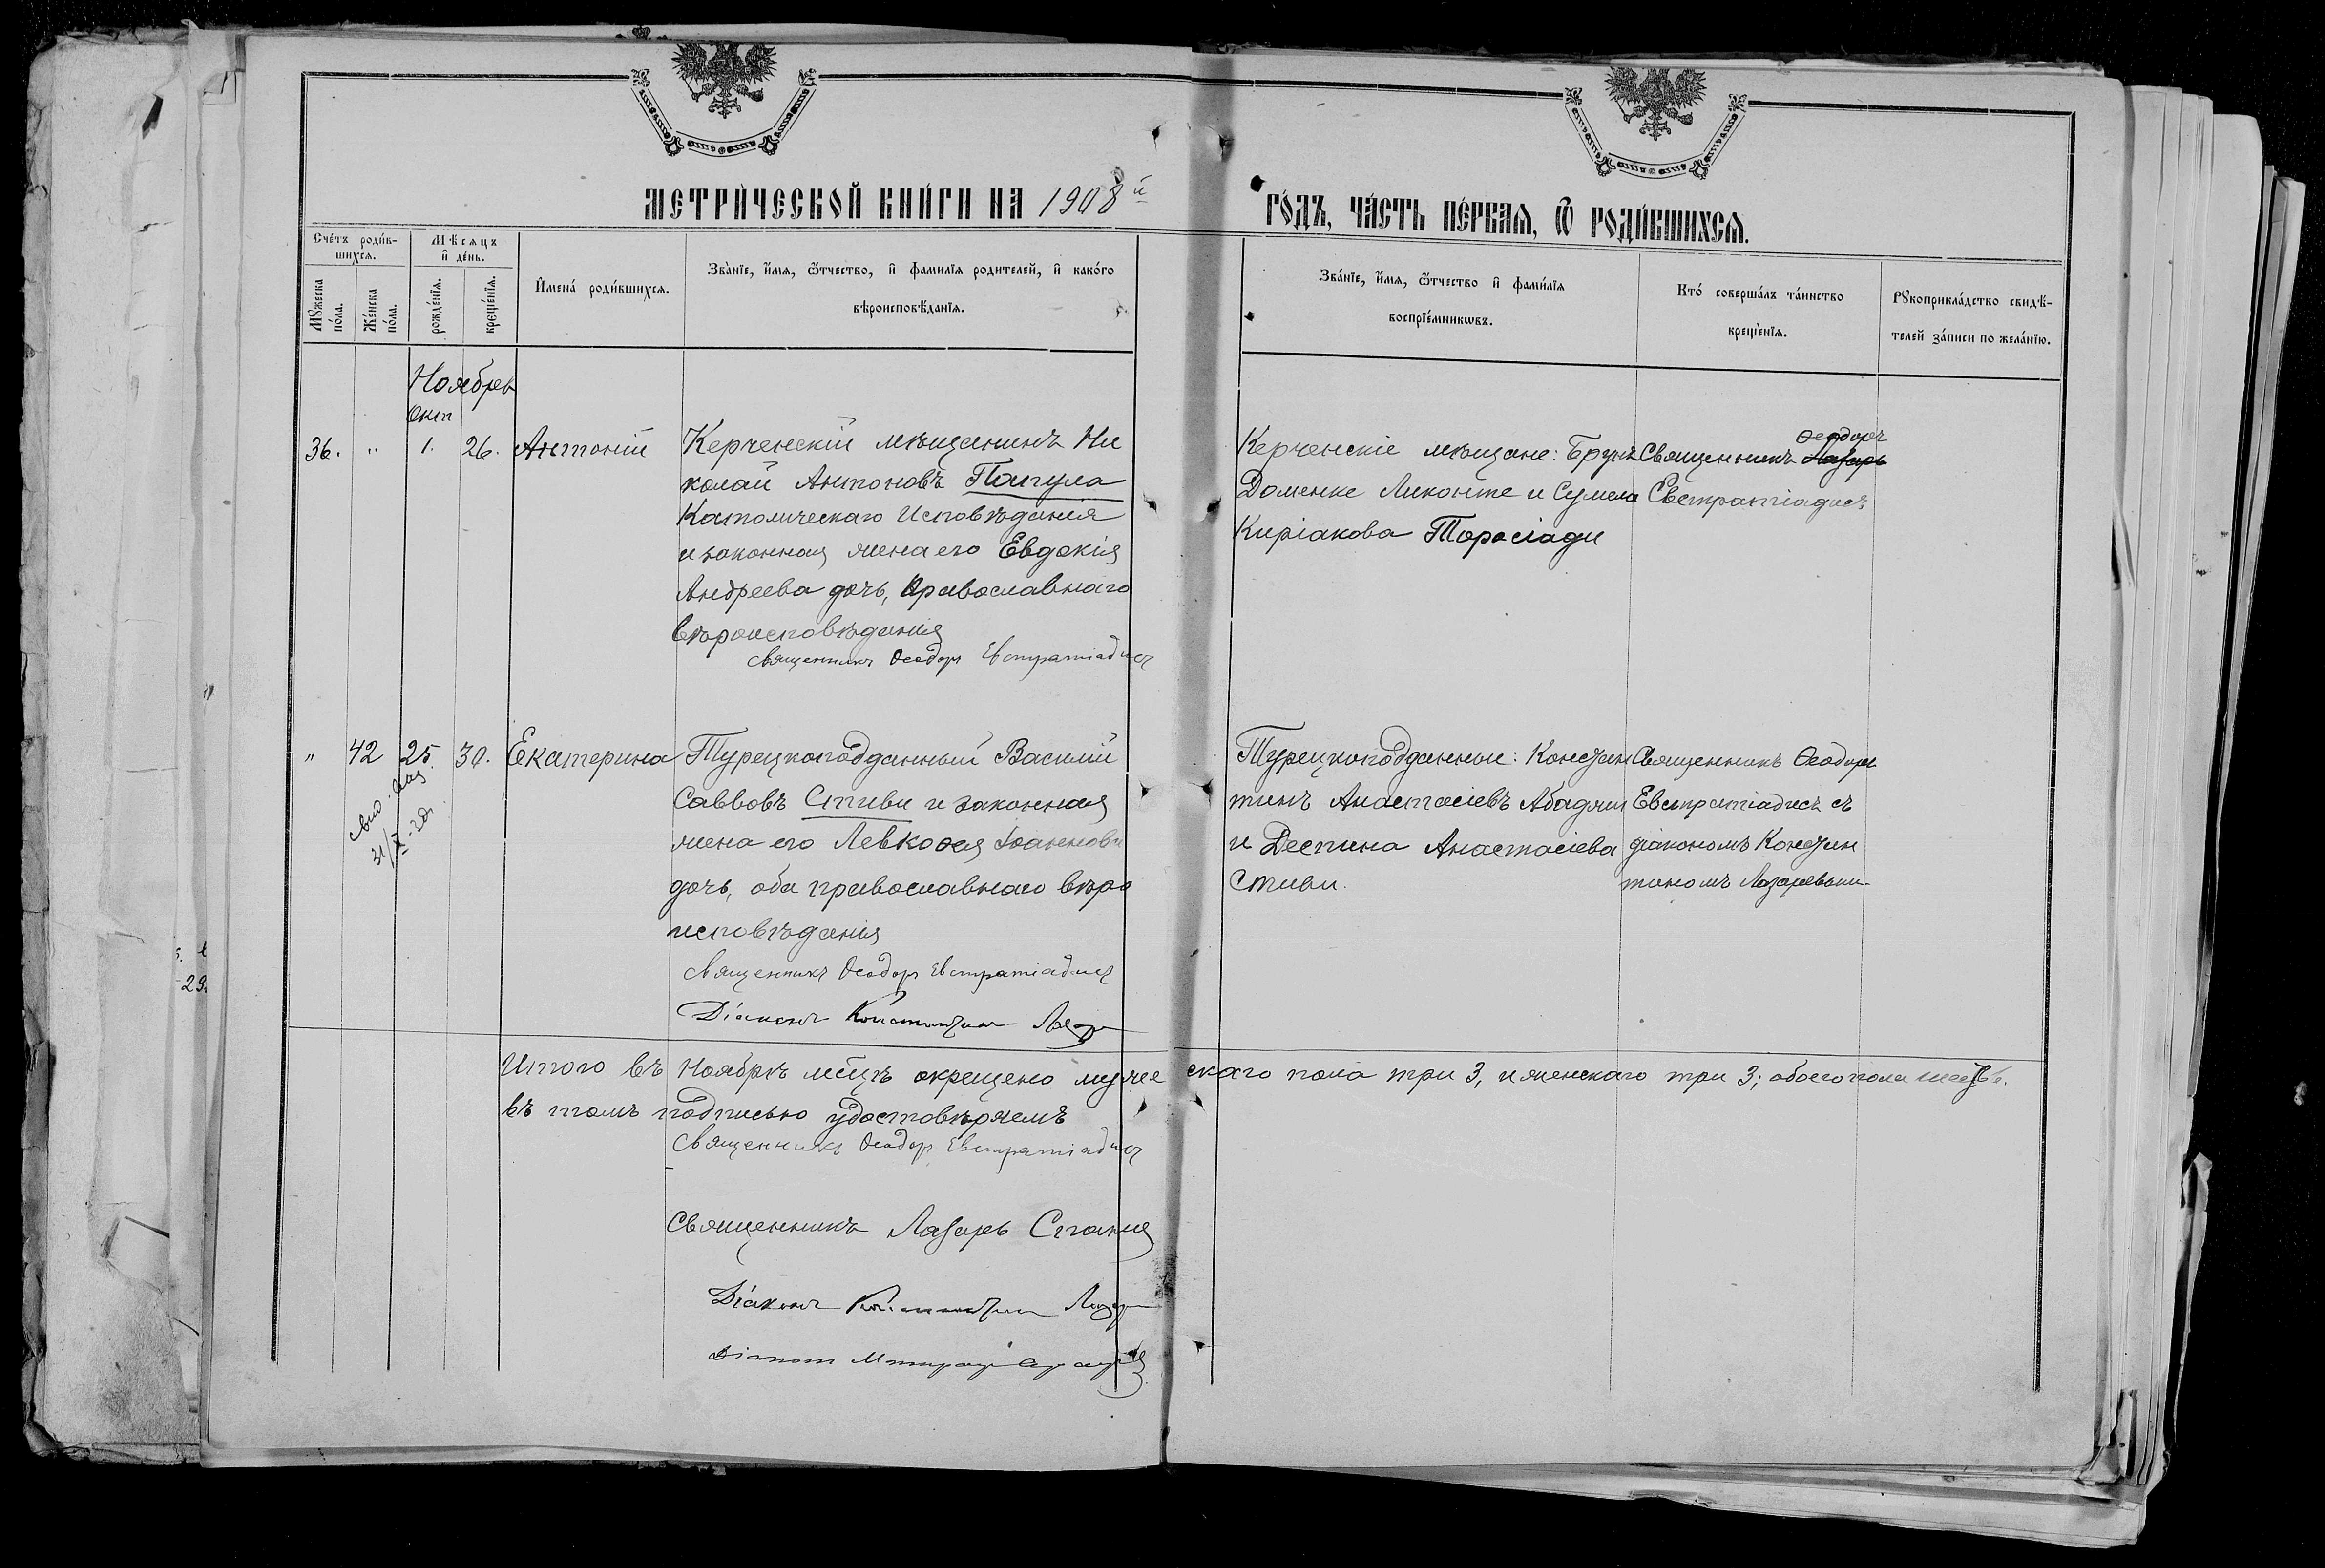 МЕТРИЧЕСКОЙ КНИГИ НА 1908й
ГОДЪ, ЧАСТЬ ПЕРВАЯ, Ѿ РОДИВШИХСЯ.
Счетъ родив-
шихся.
Мѣсяцъ
и день.
Мужеска
пола.
Женска
пола.
рожденія.
крещенія.
Имена родившихся.
Званіе, имя, ѿтчество, и фамилія родителей, и какого
вѣроисповѣданія.
Званіе, имя, ѿтчество и фамилія
воспріемниковъ.
Кто совершалъ таинство
крещенія.
Рукоприкладство свидѣ-
телей записи по желанію.
Ноябрь
Окт
36. " 1. 26. Антоній
Керченскій мѣщанинъ Ни
колай Антоновъ Папула
Католическаго Исповѣданія
и законная жена его Евдокія
Андреева дочь, Православнаго
вѣроисповѣданія
Священникъ Ѳеодоръ Евстратіадисъ
Керченскіе мѣщане:
Доменке Ликонте и Сумела
Киріакова Торосіади
Ѳеодоръ
Священникъ Лазарь
Евстратіадисъ
" 42 25. 30. Екатерина
Турецкоподданный Василій
Саввовъ Стиви и законная
жена его Левкоѳея Іоаннова
дочь, оба православнаго вѣро
исповѣданія
Священникъ Ѳеодоръ Евстратіадисъ
Діаконъ Константинъ
Турецкоподданные: Констан
тинъ Анастасіевъ
и Деспина Анастасіева
Стиви.
Священникъ Ѳеодоръ
Евстратіадисъ съ
діакономъ Констан
тиномъ
Итого въ Ноябрѣ мсцѣ окрещено мужескаго пола три 3, и женскаго три 3; обоего пола шесть 6.
въ томъ подписью удостовѣряемъ
Священникъ Ѳеодоръ Евстратіадисъ
Священникъ Лазарь
Діаконъ Константинъ
Діаконъ